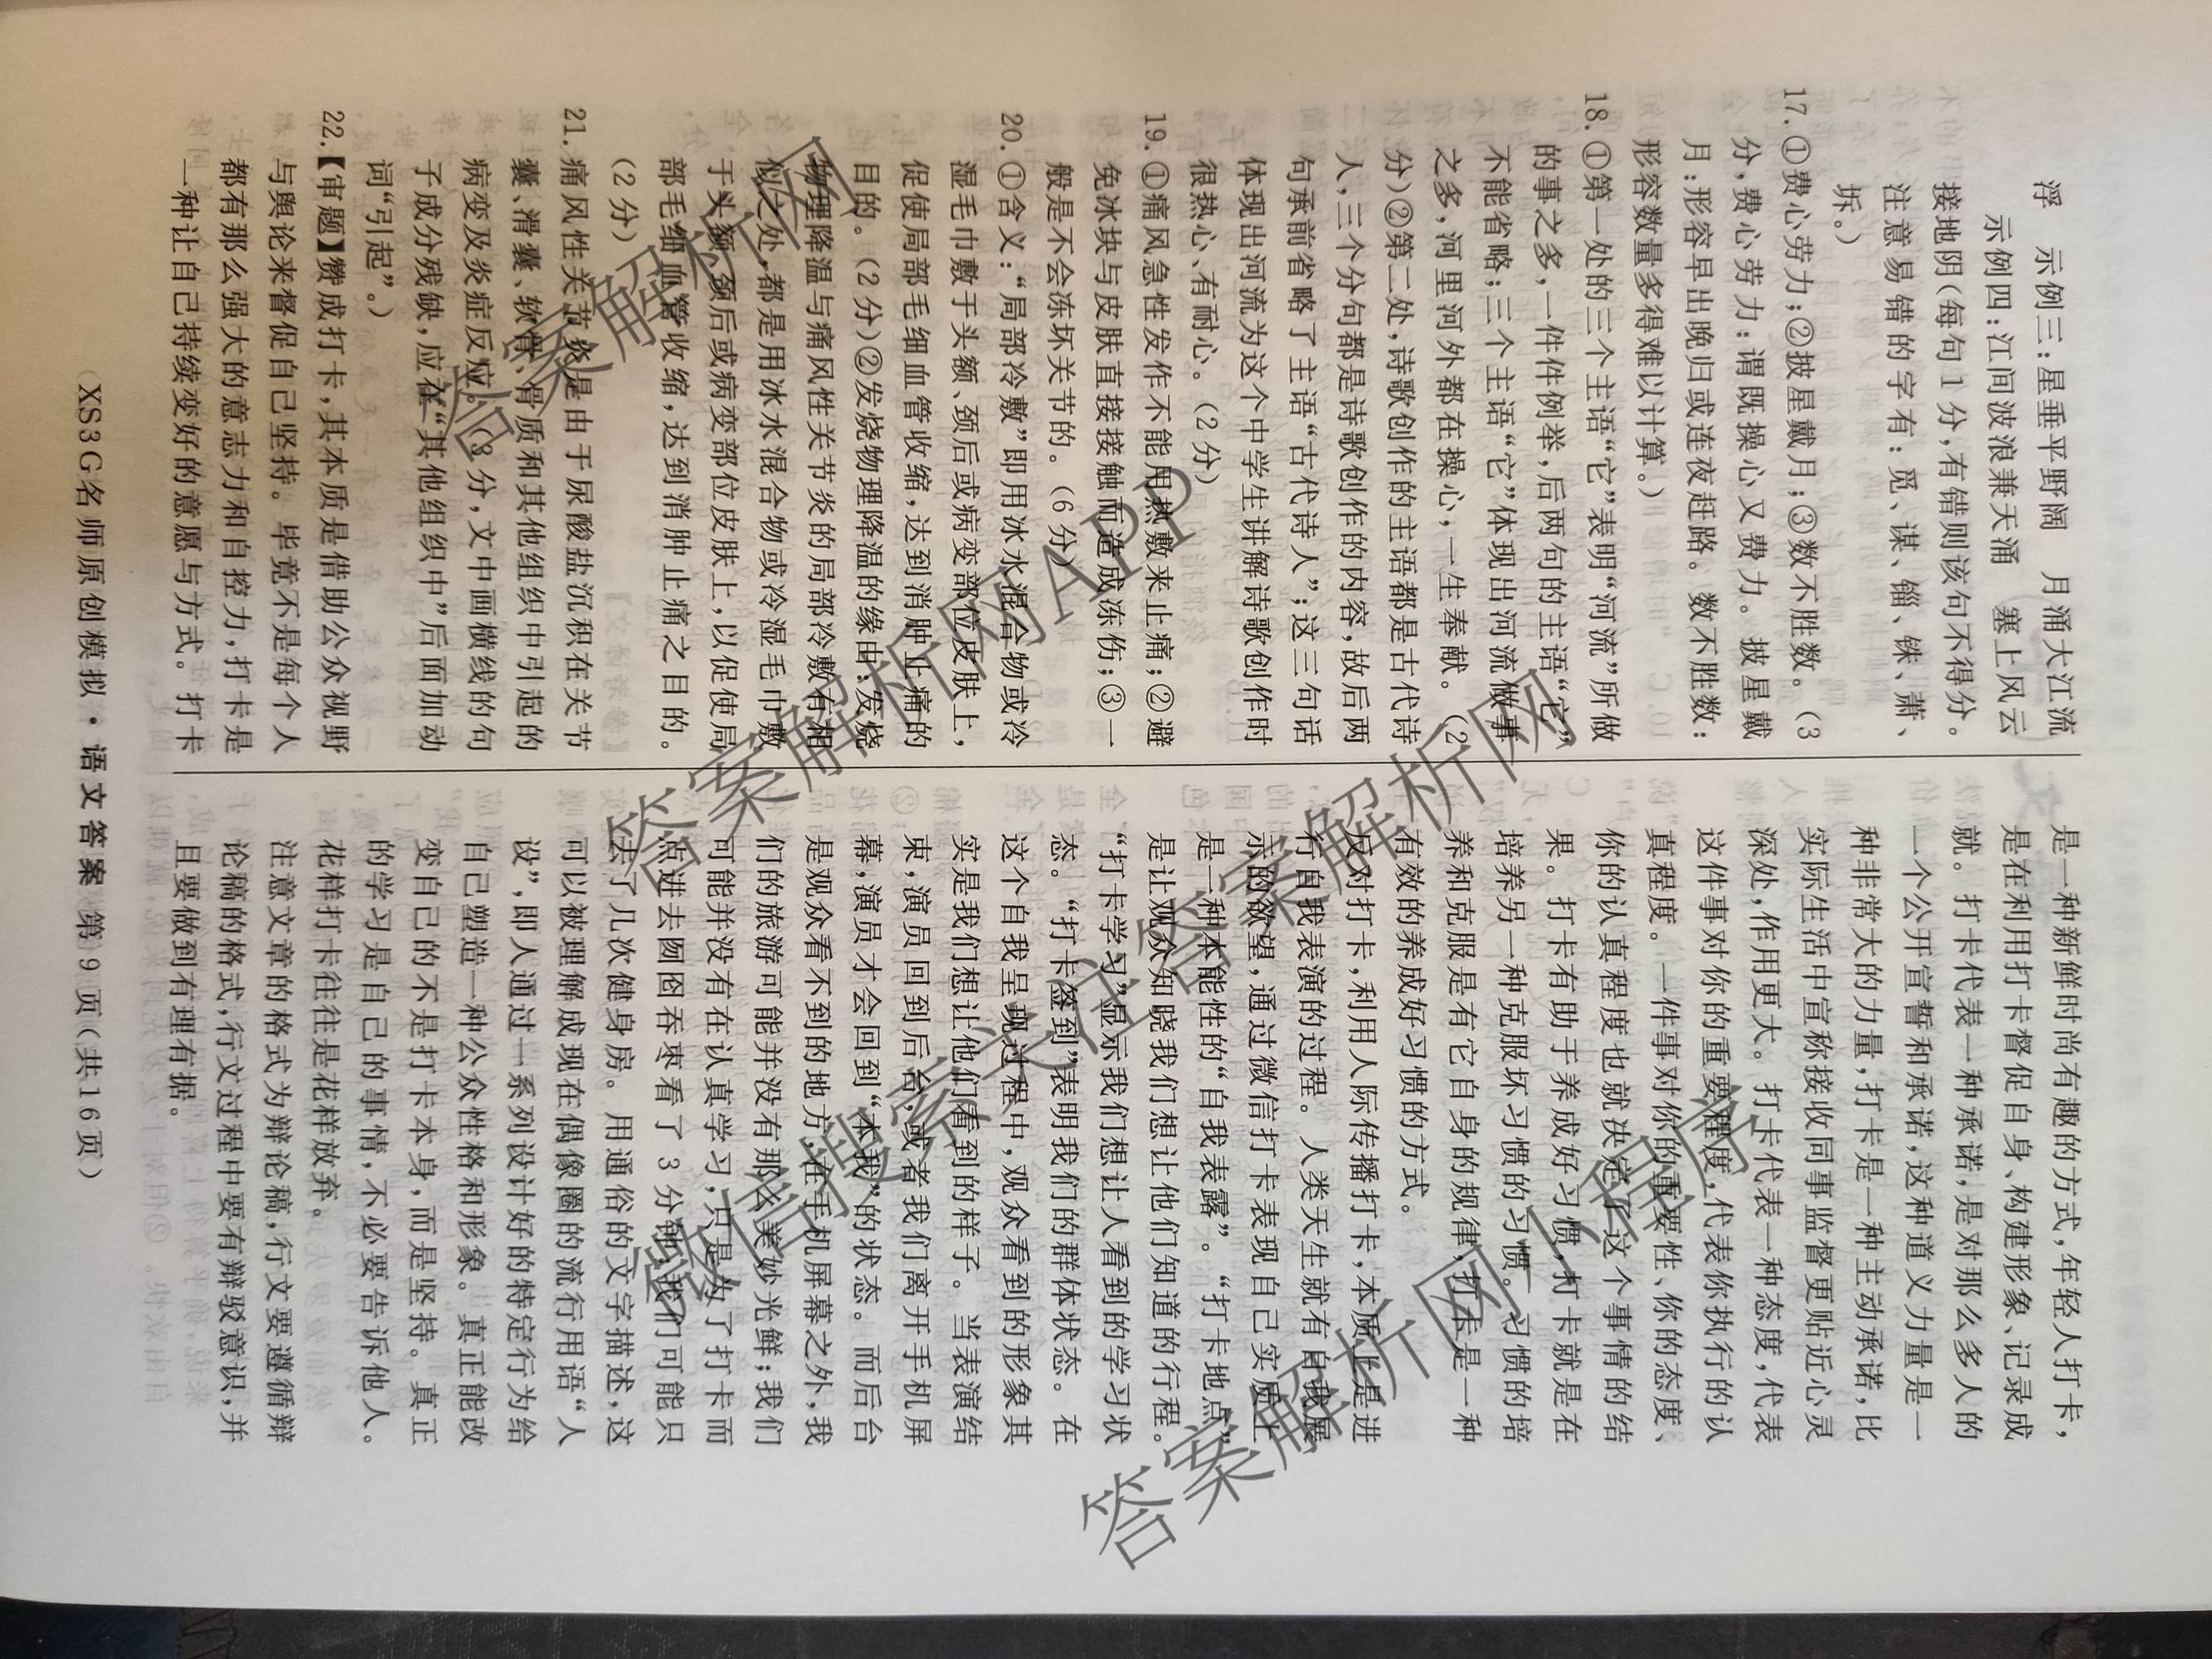 浮　示例三：星垂平野阔　月涌大江流
示例四：江间波浪兼天涌　塞上风云
接地阴（每句1分，有错则该句不得分。
注意易错的字有：觅、谋、锱、铢、萧、
坼。）
17.①费心劳力；②披星戴月；③数不胜数。（3
分，费心劳力：谓既操心又费力。披星戴
月：形容早出晚归或连夜赶路。数不胜数：
形容数量多得难以计算。）
18.①第一处的三个主语“它”表明“河流”所做
的事之多，一件件例举，后两句的主语“它”
不能省略；三个主语“它”体现出河流做事
之多，河里河外都在操心，一生奉献。（2
分）②第二处，诗歌创作的主语都是古代诗
人，三个分句都是诗歌创作的内容，故后两
句承前省略了主语“古代诗人”；这三句话
体现出河流为这个中学生讲解诗歌创作时
很热心、有耐心。（2分）
19.①痛风急性发作不能用热敷来止痛；②避
免冰块与皮肤直接接触而造成冻伤；③一
般是不会冻坏关节的。（6分）
20.①含义：“局部冷敷”即用冰水混合物或冷
湿毛巾敷于头额、颈后或病变部位皮肤上，
促使局部毛细血管收缩，达到消肿止痛的
目的。（2分）②发烧物理降温的缘由：发烧
物理降温与痛风性关节炎的局部冷敷有相
似之处，都是用冰水混合物或冷湿毛巾敷
于头额、颈后或病变部位皮肤上，以促使局
部毛细血管收缩，达到消肿止痛之目的。
（2分）
21.痛风性关节炎是由于尿酸盐沉积在关节
囊、滑囊、软骨、骨质和其他组织中引起的
病变及炎症反应。（3分，文中画横线的句
子成分残缺，应在“其他组织中”后面加动
词“引起”。）
22.【审题】赞成打卡，其本质是借助公众视野
与舆论来督促自己坚持。毕竟不是每个人
都有那么强大的意志力和自控力，打卡是
一种让自己持续变好的意愿与方式。打卡
是一种新鲜时尚有趣的方式，年轻人打卡，
是在利用打卡督促自身、构建形象、记录成
就。打卡代表一种承诺，是对那么多人的
一个公开宣誓和承诺，这种道义力量是一
种非常大的力量，打卡是一种主动承诺，比
实际生活中宣称接收同事监督更贴近心灵
深处，作用更大。打卡代表一种态度，代表
这件事对你的重要程度，代表你执行的认
真程度。一件事对你的重要性、你的态度、
你的认真程度也就决定了这个事情的结
果。打卡有助于养成好习惯，打卡就是在
培养另一种克服坏习惯的习惯。习惯的培
养和克服是有它自身的规律，打卡是一种
有效的养成好习惯的方式。
反对打卡，利用人际传播打卡，本质上是进
行自我表演的过程。人类天生就有自我展
示的欲望，通过微信打卡表现自己实质上
是一种本能性的“自我表露”。“打卡地点”
是让观众知晓我们想让他们知道的行程。
“打卡学习”显示我们想让人看到的学习状
态。“打卡签到”表明我们的群体状态。在
这个自我呈现过程中，观众看到的形象其
实是我们想让他们看到的样子。当表演结
束，演员回到后台，或者我们离开手机屏
幕，演员才会回到“本我”的状态。而后台
是观众看不到的地方，在手机屏幕之外，我
们的旅游可能并没有那么美妙光鲜；我们
可能并没有在认真学习，只是为了打卡而
点进去囫囵吞枣看了3分钟；我们可能只
去了几次健身房。用通俗的文字描述，这
可以被理解成现在偶像圈的流行用语“人
设”，即人通过一系列设计好的特定行为给
自己塑造一种公众性格和形象。真正能改
变自己的不是打卡本身，而是坚持。真正
的学习是自己的事情，不必要告诉他人。
花样打卡往往是花样放弃。
注意文章的格式为辩论稿，行文要遵循辩
论稿的格式，行文过程中要有辩驳意识，并
且要做到有理有据。
XS3G名师原创模拟·语文答案 第9页（共16页）
答案解析网
答案解析网APP
微信搜索关注答案解析网
答案解析网小程序